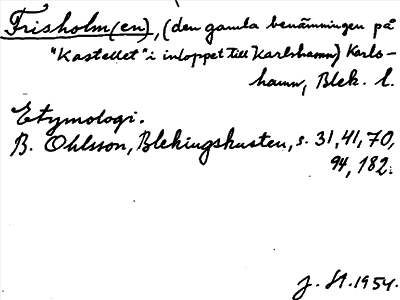 Frisholm(en), (den gamla benämningen på
"Kastellet" i inloppet till Karlshamn) Karls-
hamn, Blek. l.
Etymologi.
B. Ohlsson, Blekingskusten, s. 31, 41, 70,
94, 182.
J. St. 1954.